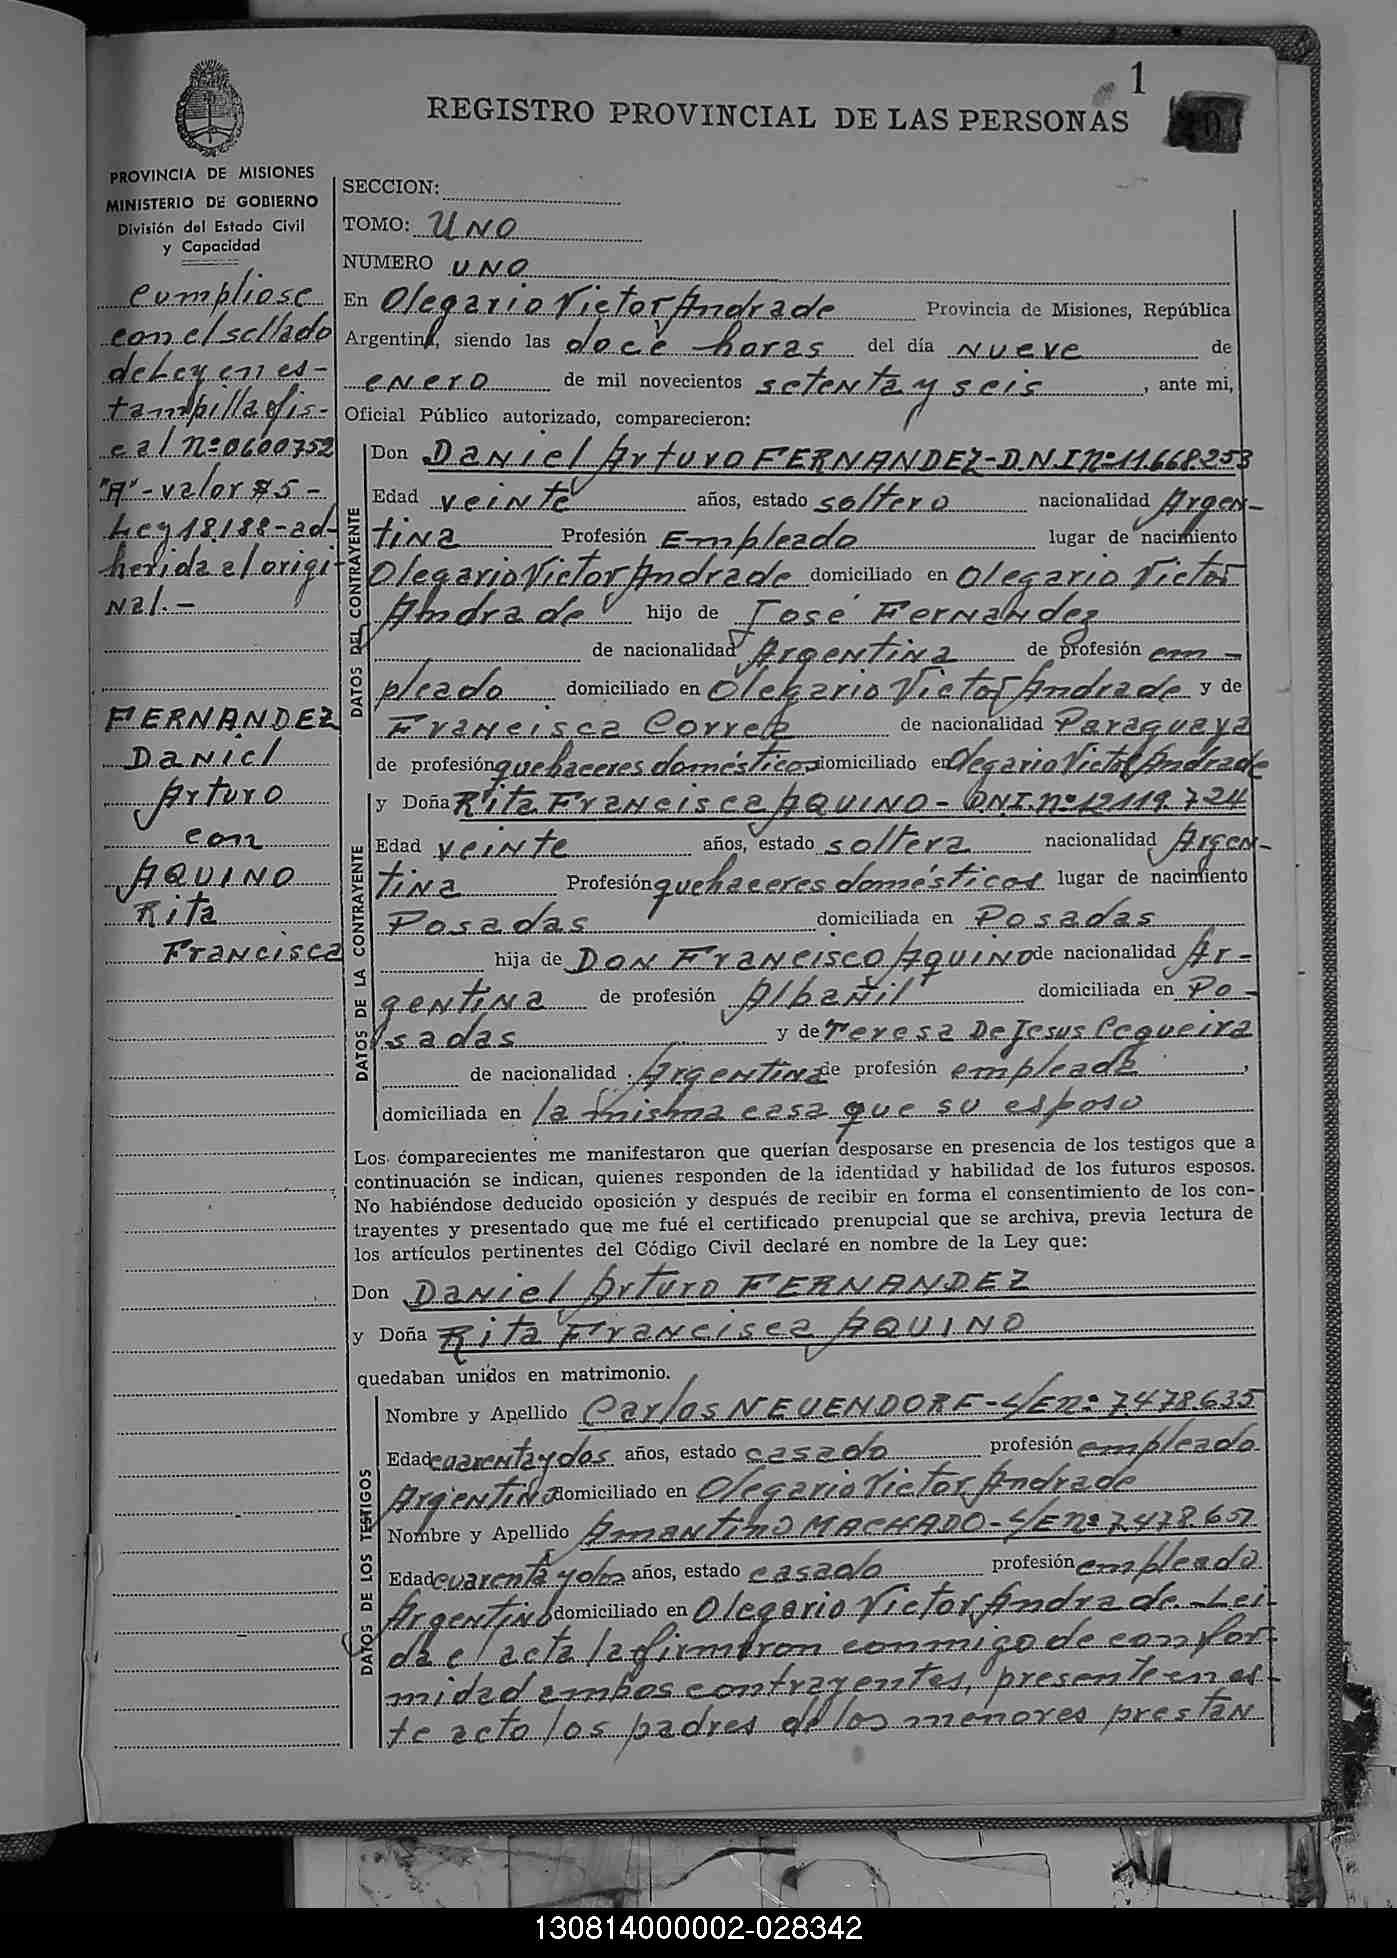 1
REGISTRO PROVINCIAL DE LAS PERSONAS
PROVINCIA DE MISIONES
MINISTERIO DE GOBIERNO
División del Estado Civil
y Capacidad
cumpliose
con el sellado
de Ley en es-
tampilla fis-
cal Nº 0600752
"A" - valor $5 -
Ley 18.188 - ad-
herida al origi-
nal.-
FERNANDEZ
Daniel
Arturo
con
AQUINO
Rita
Francisca
SECCION:
TOMO: UNO
NUMERO UNO
En Olegario Victor Andrade Provincia de Misiones, República
Argentina, siendo las doce horas del día nueve de
enero de mil novecientos setenta y seis, ante mi,
Oficial Público autorizado, comparecieron:
DATOS DEL CONTRAYENTE
Don Daniel Arturo FERNANDEZ - D.N.I. Nº 11.668.253
Edad veinte años, estado soltero nacionalidad Argen-
tina Profesión Empleado lugar de nacimiento
Olegario Victor Andrade domiciliado en Olegario Victor
Andrade hijo de José Fernandez
de nacionalidad Argentina de profesión em-
pleado domiciliado en Olegario Victor Andrade y de
Francisca Correa de nacionalidad Paraguaya
de profesión quehaceres domésticos domiciliado en Olegario Victor Andrade
DATOS DE LA CONTRAYENTE
y Doña Rita Francisca AQUINO - D.N.I. Nº 12.119.724
Edad veinte años, estado soltera nacionalidad Argen-
tina Profesión quehaceres domésticos lugar de nacimiento
Posadas domiciliada en Posadas
hija de Don Francisco Aquino de nacionalidad Ar-
gentina de profesión Albañil domiciliada en Po-
sadas y de Teresa De Jesus Cequeira
de nacionalidad Argentina de profesión empleada,
domiciliada en la misma casa que su esposo
Los comparecientes me manifestaron que querían desposarse en presencia de los testigos que a
continuación se indican, quienes responden de la identidad y habilidad de los futuros esposos.
No habiéndose deducido oposición y después de recibir en forma el consentimiento de los con-
trayentes y presentado que me fué el certificado prenupcial que se archiva, previa lectura de
los artículos pertinentes del Código Civil declaré en nombre de la Ley que:
Don Daniel Arturo FERNANDEZ
y Doña Rita Francisca AQUINO
quedaban unidos en matrimonio.
DATOS DE LOS TESTIGOS
Nombre y Apellido Carlos NEUENDORF - L/E Nº 7.478.635
Edad cuarenta y dos años, estado casado profesión empleado
Argentino domiciliado en Olegario Victor Andrade
Nombre y Apellido Amantino MACHADO - L/E Nº 7.478.657
Edad cuarenta y dos años, estado casado profesión empleado
Argentino domiciliado en Olegario Victor Andrade. Lei-
da el acta la firmaron conmigo de confor-
midad ambos contrayentes, presente en es-
te acto los padres de los menores prestan
130814000002-028342